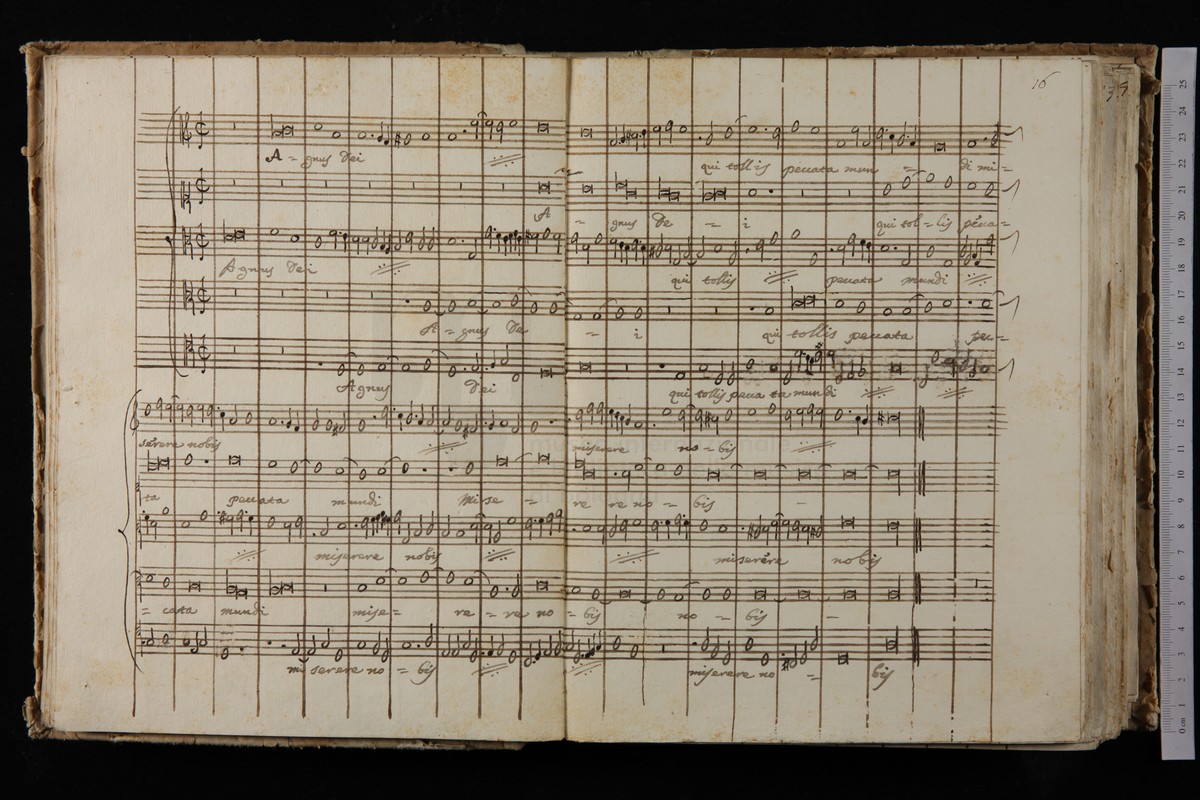 16
A = gnus Dei qui tollis peccata mun = di mi =
A = gnus De = i qui tol = lis pecca =
Agnus Dei qui tollis peccata mundi
A = gnus De = i qui tollis peccata pec =
Agnus Dei qui tollis pecca ta mundi
serere nobis miserere no = bis
ta peccata mundi Mise = re re no = bis
miserere nobis miserere nobis
= cata mundi mise = re = re no = bis no = bis
mi serere no = bis miserere no = bis